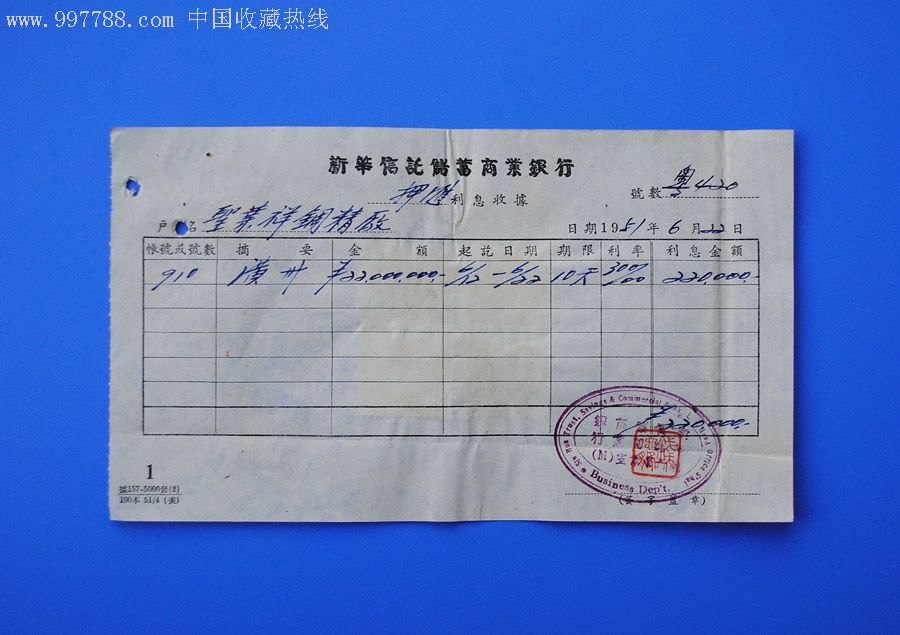 www.997788.com 中国收藏热线
新華信託儲蓄商業銀行
押匯利息收據
號數 粵420
戶名 聖業祥鋼精廠
日期1951年6月22日
帳號或號數 摘要 金額 起訖日期 期限 利率 利息金額
910 漢廾 ¥22,000,000.- 6/12-6/22 10天 300/100 220,000.-
¥220,000.-
Sin Hua Trust, Savings & Commercial Bank, L Head Office S'hai
銀行 (M) 室
Business Dep't.
1
據157-5000套(2)
100本 51/4 (美)
(簽字蓋章)